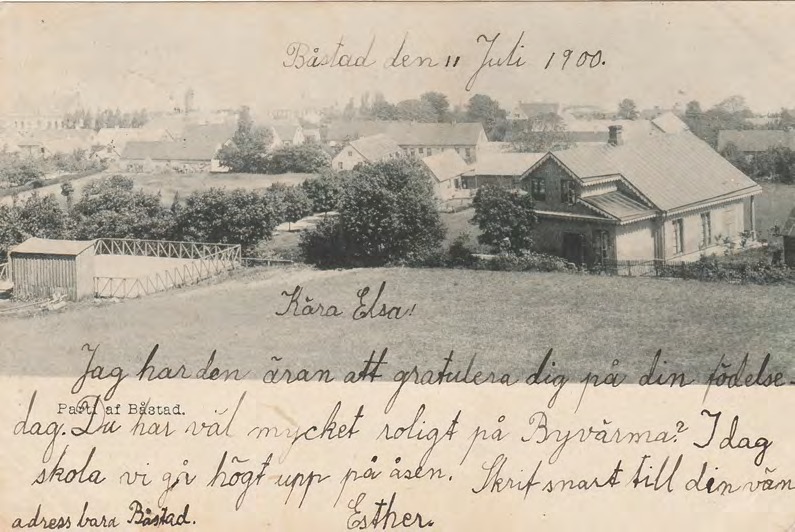 Båstad den 11 Juli 1900.
Kära Elsa!
Jag har den äran att gratulera dig på din födelse-
Parti af Båstad.
dag. Du har väl mycket roligt på Byvärma? I dag
skola vi gå högt upp på åsen. Skrif snart till din vän
adress bara Båstad. Esther.